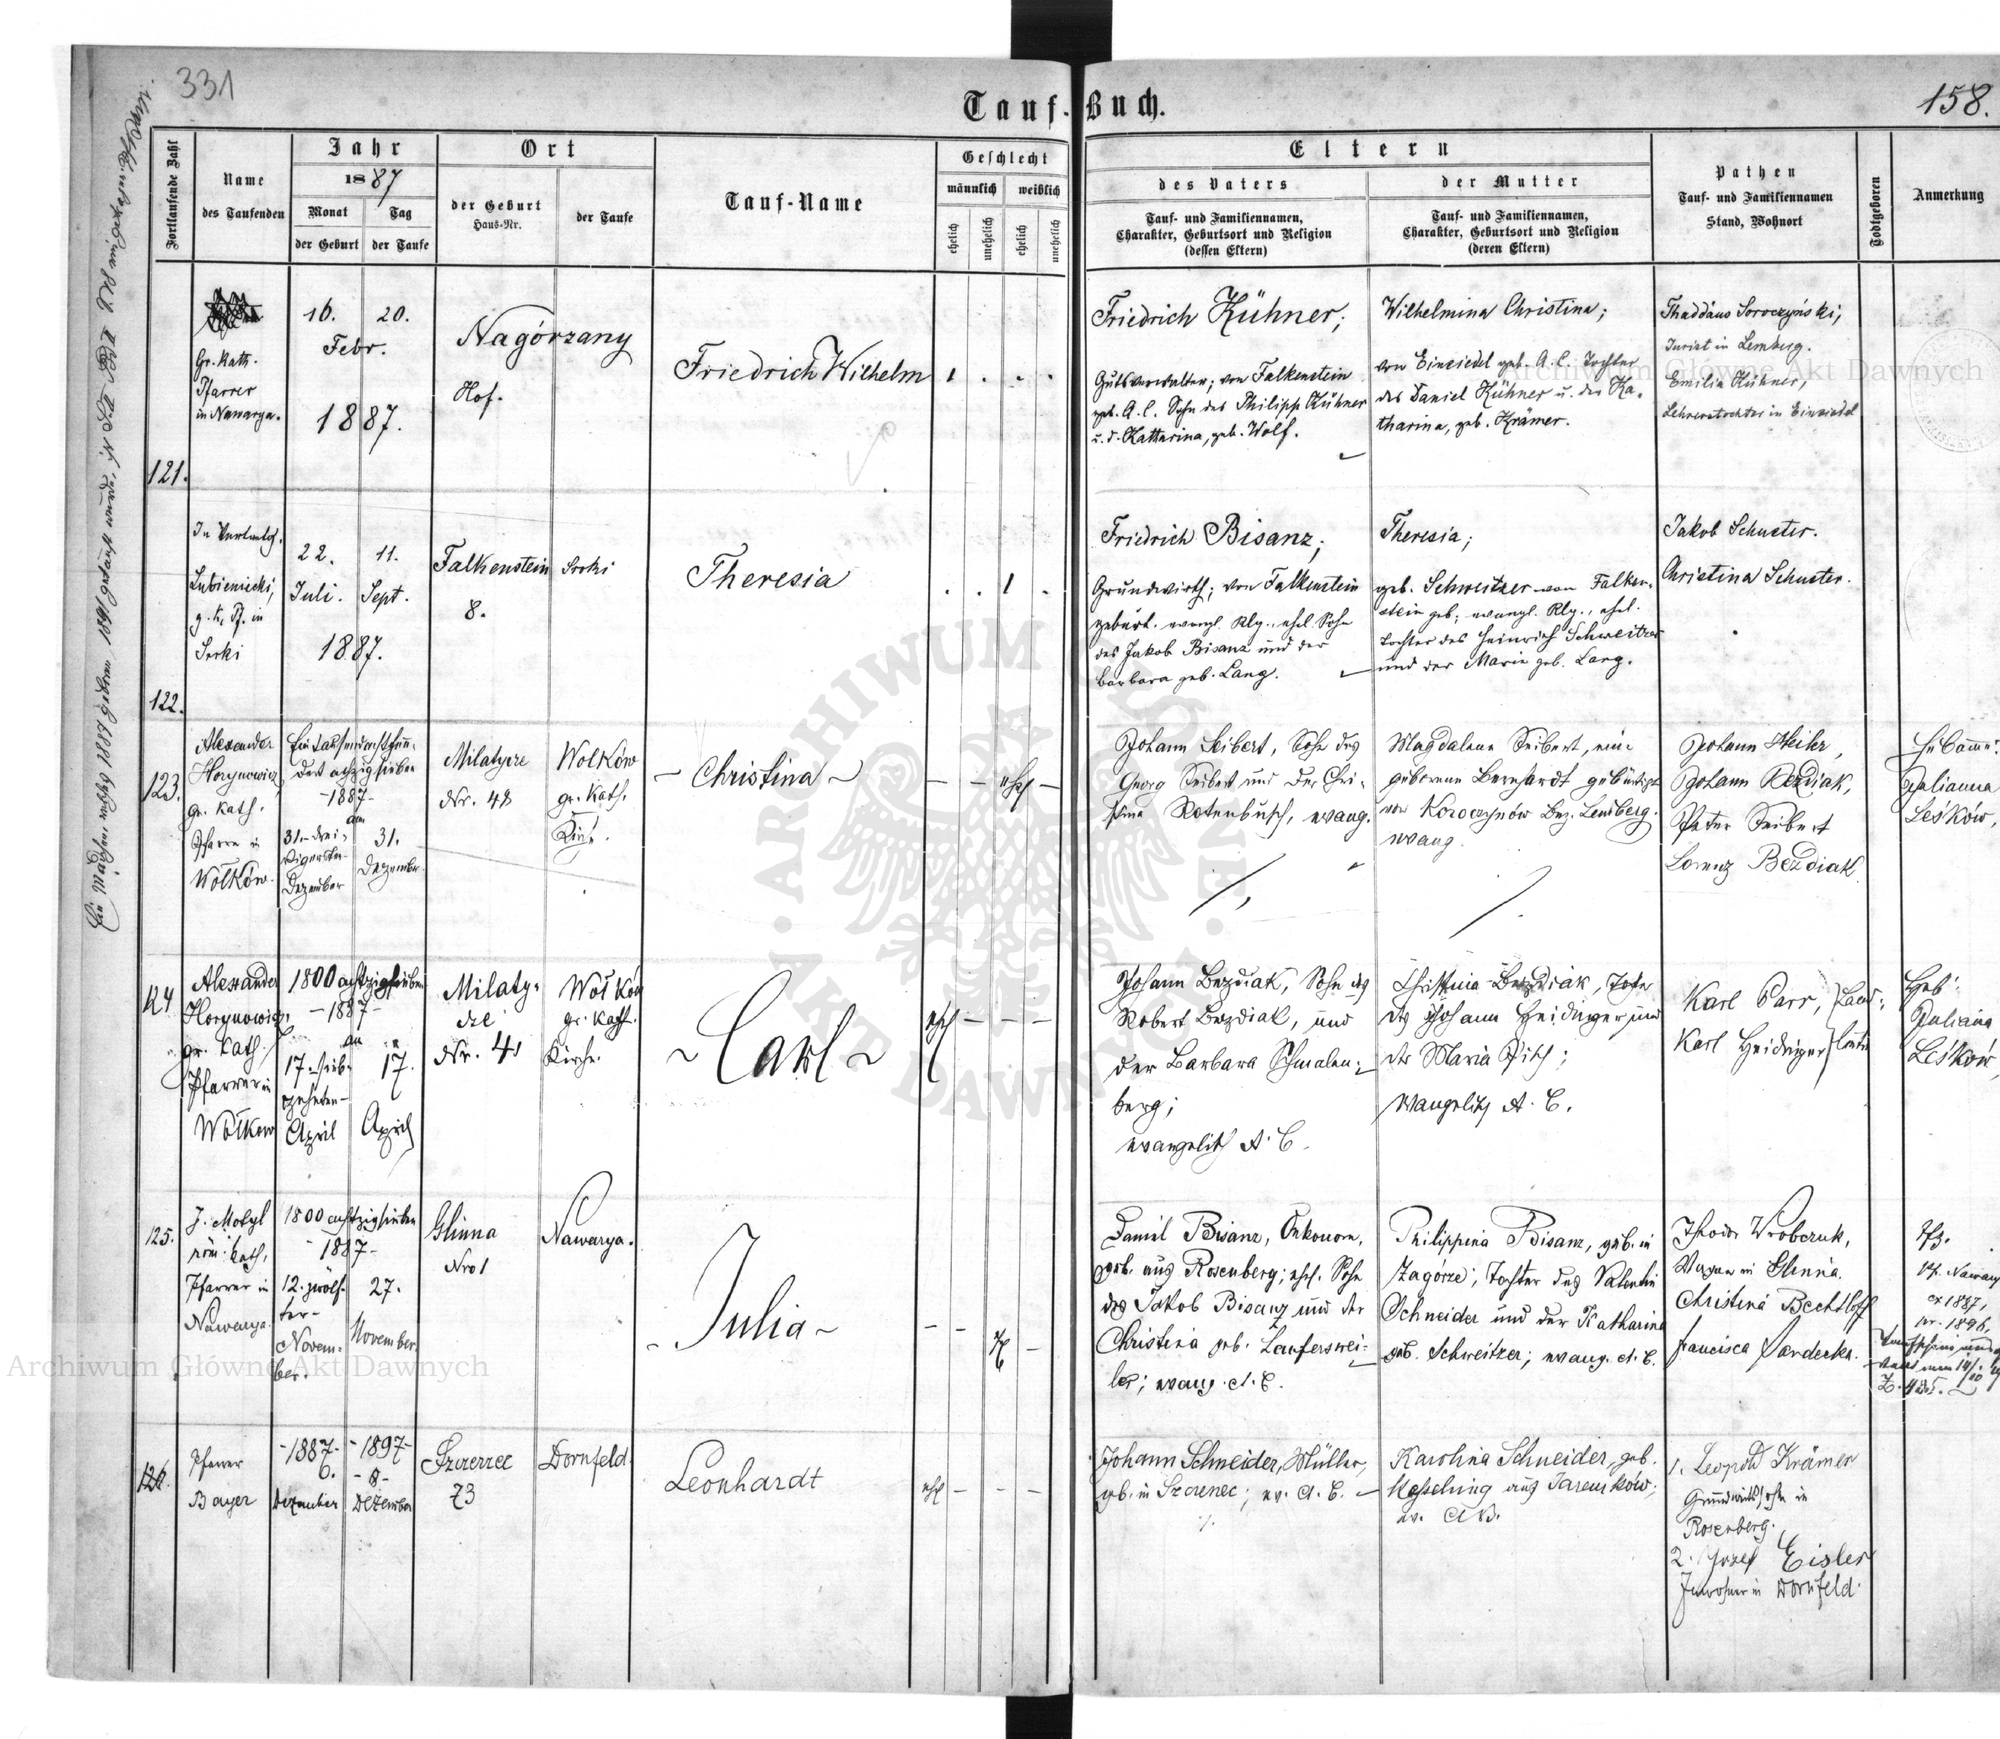 331
Tauf-Buch.
158.
Fortlaufende Zahl
Name
des Taufenden
Jahr
1887
Monat
der Geburt
Tag
der Taufe
Ort
der Geburt
Haus-Nr.
der Taufe
Tauf-Name
Geschlecht
männlich
weiblich
ehelich
unehelich
ehelich
unehelich
Eltern
des Vaters
Tauf- und Familiennamen,
Charakter, Geburtsort und Religion
(dessen Eltern)
der Mutter
Tauf- und Familiennamen,
Charakter, Geburtsort und Religion
(deren Eltern)
Pathen
Tauf- und Familiennamen
Stand, Wohnort
Todtgeboren
Anmerkung
121.
Gr. Kath.
Pfarrer
in Nawarya.
16. 20.
Febr.
1887.
Nagórzany
Hof.
Friedrich Wilhelm
1 . . .
Friedrich Kühner;
Gutsverwalter; von Falkenstein
geb. A. C. Sohn des Philipp Kühner
u. d. Katharina, geb. Wolf.
Wilhelmina Christina;
von Einsiedel geb. A. C. Tochter
des Daniel Kühner u. der Ka-
tharina, geb. Krämer.
Thaddäus Soroczyński,
Jurist in Lemberg.
Emilia Kühner,
Lehrerstochter in Einsiedel
122.
Lubieniecki,
g. k. Pf. in
Serki
22. 11.
Juli. Sept.
1887.
Falkenstein
8.
Serki
Theresia
. . 1 .
Friedrich Bisanz;
Grundwirth; von Falkenstein
gebürt. evangl. Rlg., ehel. Sohn
des Jakob Bisanz und der
Barbara geb. Lang.
Theresia;
geb. Schweitzer von Falken-
stein geb; evangl. Rlg., ehel.
Tochter des Heinrich Schweitzer
und der Marie geb. Lang.
Jakob Schuster.
Christina Schuster.
123.
Alexander
Horynowicz
gr. kath.
Pfarrer in
Wołków.
Eintausendachthun-
dert achtzigsieben
-1887-
am
31. 31.
Dezember Dezember
Milatycze
Nr. 48
Wołków
gr. kath.
Kirche.
Christina
— — ehel —
Johann Seibert, Sohn des
Georg Seibert und der Chri-
stina Rotenbusch, evang.
Magdalena Seibert, eine
geborene Bernhardt gebürtigt
von Korocznów Bez. Lemberg.
evang.
Johann Bezdiak,
Peter Seibert
Lorenz Bezdiak
Hebamme:
Julianna
Leśków,
124
Alexander
Horynowicz,
gr. kath.
Pfarrer in
Wołkow
1800 achtzigsieben
-1887-
am
17 17.
April April
Milaty-
cze
Nr. 41
Wołków
gr. kath.
Kirche.
Carl
ehel — — —
Johann Bezdiak, Sohn des
Robert Bezdiak, und
der Barbara Schmalen-
berg;
evangelisch A. C.
Christina Bezdiak, Tochter
des Johann Heidinger und
der Maria Pitz;
evangelisch A. C.
Karl Parr,
Karl Heidinger
Heb:
Juliana
Leśków,
125.
J. Motyl
röm. kath.
Pfarrer in
Nawarya
1800 achtzigsieben
-1887-
12. zwölf-
ter- 27.
Novem-
ber. November.
Glinna
Nro 1
Nawarya.
Julia
Daniel Bisanz, Oekonom,
geb. aus Rosenberg; ehel. Sohn
des Jakob Bisanz und der
Christina geb. Lauferswei-
ler; evang. A. C.
Philippina Bisanz, geb. in
Zagórze, Tochter des Valentin
Schneider und der Katharina
geb. Schweitzer; evang. A. C.
Theodor Wrobczuk,
in Glinna.
Christina Bechtloff
Francisca Sardecka.
Pf. Nawary
ex 1887,
nr. 1896,
126.
Pfarrer
Bayer
-1887- -1897-
6. -8-
Dezember Dezember
Szczerzec
73
Dornfeld
Leonhardt
ehel — — —
Johann Schneider, Müller,
geb. in Szczerzec; ev. A. C.
Karolina Schneider, geb.
Messching aus Jaremków;
ev. A. B.
1. Leopold Krämer
Grundwirthssohn in
Rosenberg.
2. Josef Eisler
Inwohner in Dornfeld.
Archiwum Główne Akt Dawnych
Archiwum Główne Akt Dawnych
ARCHIWUM GŁÓWNE AKT DAWNYCH